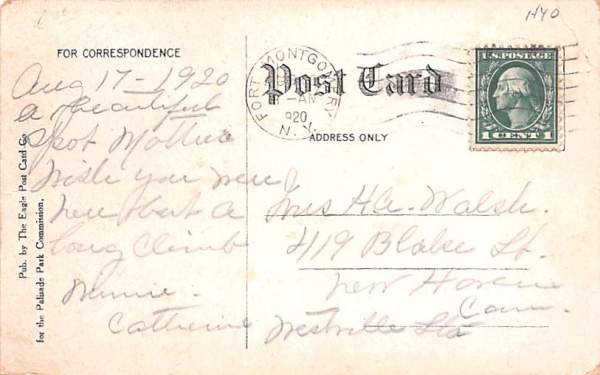 HYO
FOR CORRESPONDENCE
Post Card
ADDRESS ONLY
FORT MONTGOMERY
-AM
1920
N.Y.
U.S. POSTAGE
1 CENT 1
Pub. by The Eagle Post Card Co.
for the Palisade Park Commission,
Aug 17-1920
A beautiful
spot Mother
Wish you were
here but a
long climb
Minnie.
Catherine
Mrs H.A. Walsh.
419 Blake St.
New Haven
Conn.
Westville Sta